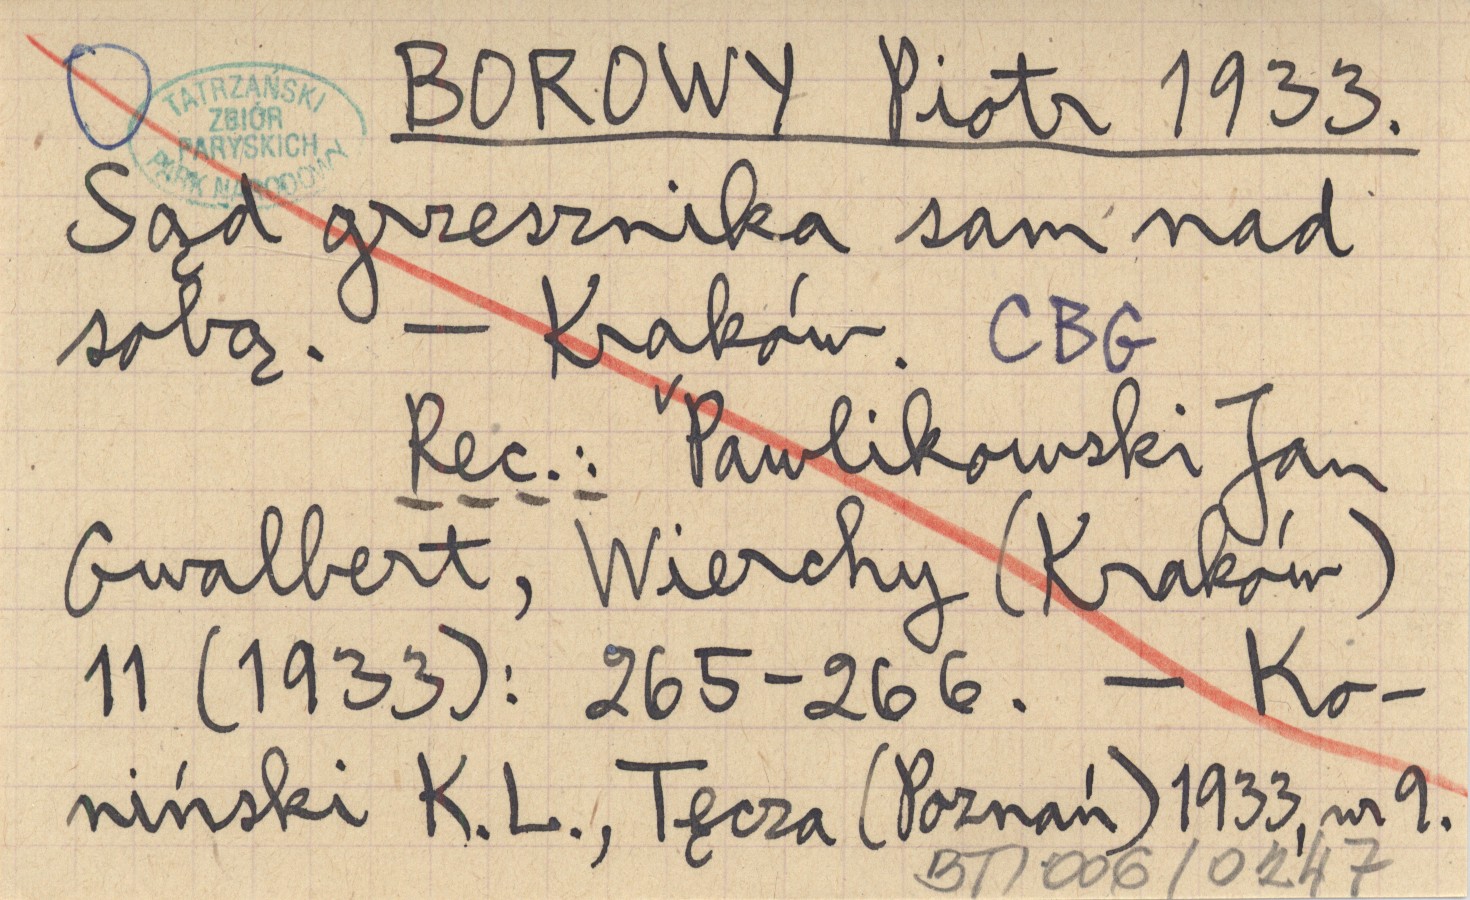 TATRZAŃSKI
ZBIÓR
PARYSKICH
PARK NARODOWY
BOROWY Piotr 1933.
Sąd grzesznika sam nad
sobą. — Kraków. CBG
Rec.: Pawlikowski Jan
Gwalbert, Wierchy (Kraków)
11 (1933): 265-266. — Ko-
niński K.L., Tęcza (Poznań) 1933, nr 9.
BTP 006/0247